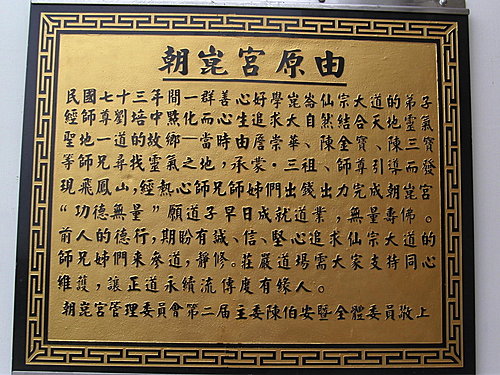 朝崑宮原由
民國七十三年間一群善心好學崑崙仙宗大道的弟子
經師尊劉培中點化而心生追求大自然結合天地靈氣
聖地一道的故鄉—當時由詹崇華、陳全寶、陳三寶
等師兄尋找靈氣之地，承蒙・三祖、師尊引導而發
現飛鳳山，經熱心師兄師姊們出錢出力完成朝崑宮
“功德無量”願道子早日成就道業，無量壽佛。
前人的德行，期盼有誠、信、堅心追求仙宗大道的
師兄姊們來參道，靜修。莊嚴道場需大家支持同心
維護，讓正道永續流傳度有緣人。
朝崑宮管理委員會第二屆主委陳伯安暨全體委員敬上